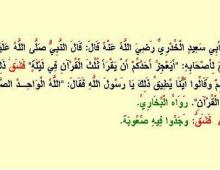 أبي سعيد الخُدْرِيِّ رَضِيَ اللَّهُ عَنْهُ قَالَ: قَالَ النَّبِيُّ صَلَّى اللَّهُ عَلَيْ
مَ لِأَصْحَابِهِ: "أَيَعْجِزُ أَحَدُكُمْ أَنْ يَقْرَأَ ثُلُثَ الْقُرْآنِ فِي لَيْلَةٍ" فَشَقَّ ذَ
مْ وَقَالُوا أَيُّنَا يُطِيقُ ذَلِكَ يَا رَسُولَ اللَّهِ فَقَالَ: "اللَّهُ الْوَاحِدُ الصَّ
الْقُرْآنِ". رَوَاهُ الْبُخَارِيُّ.
فَشَقَّ: وَجَدُوا فِيهِ صُعُوبَةً.